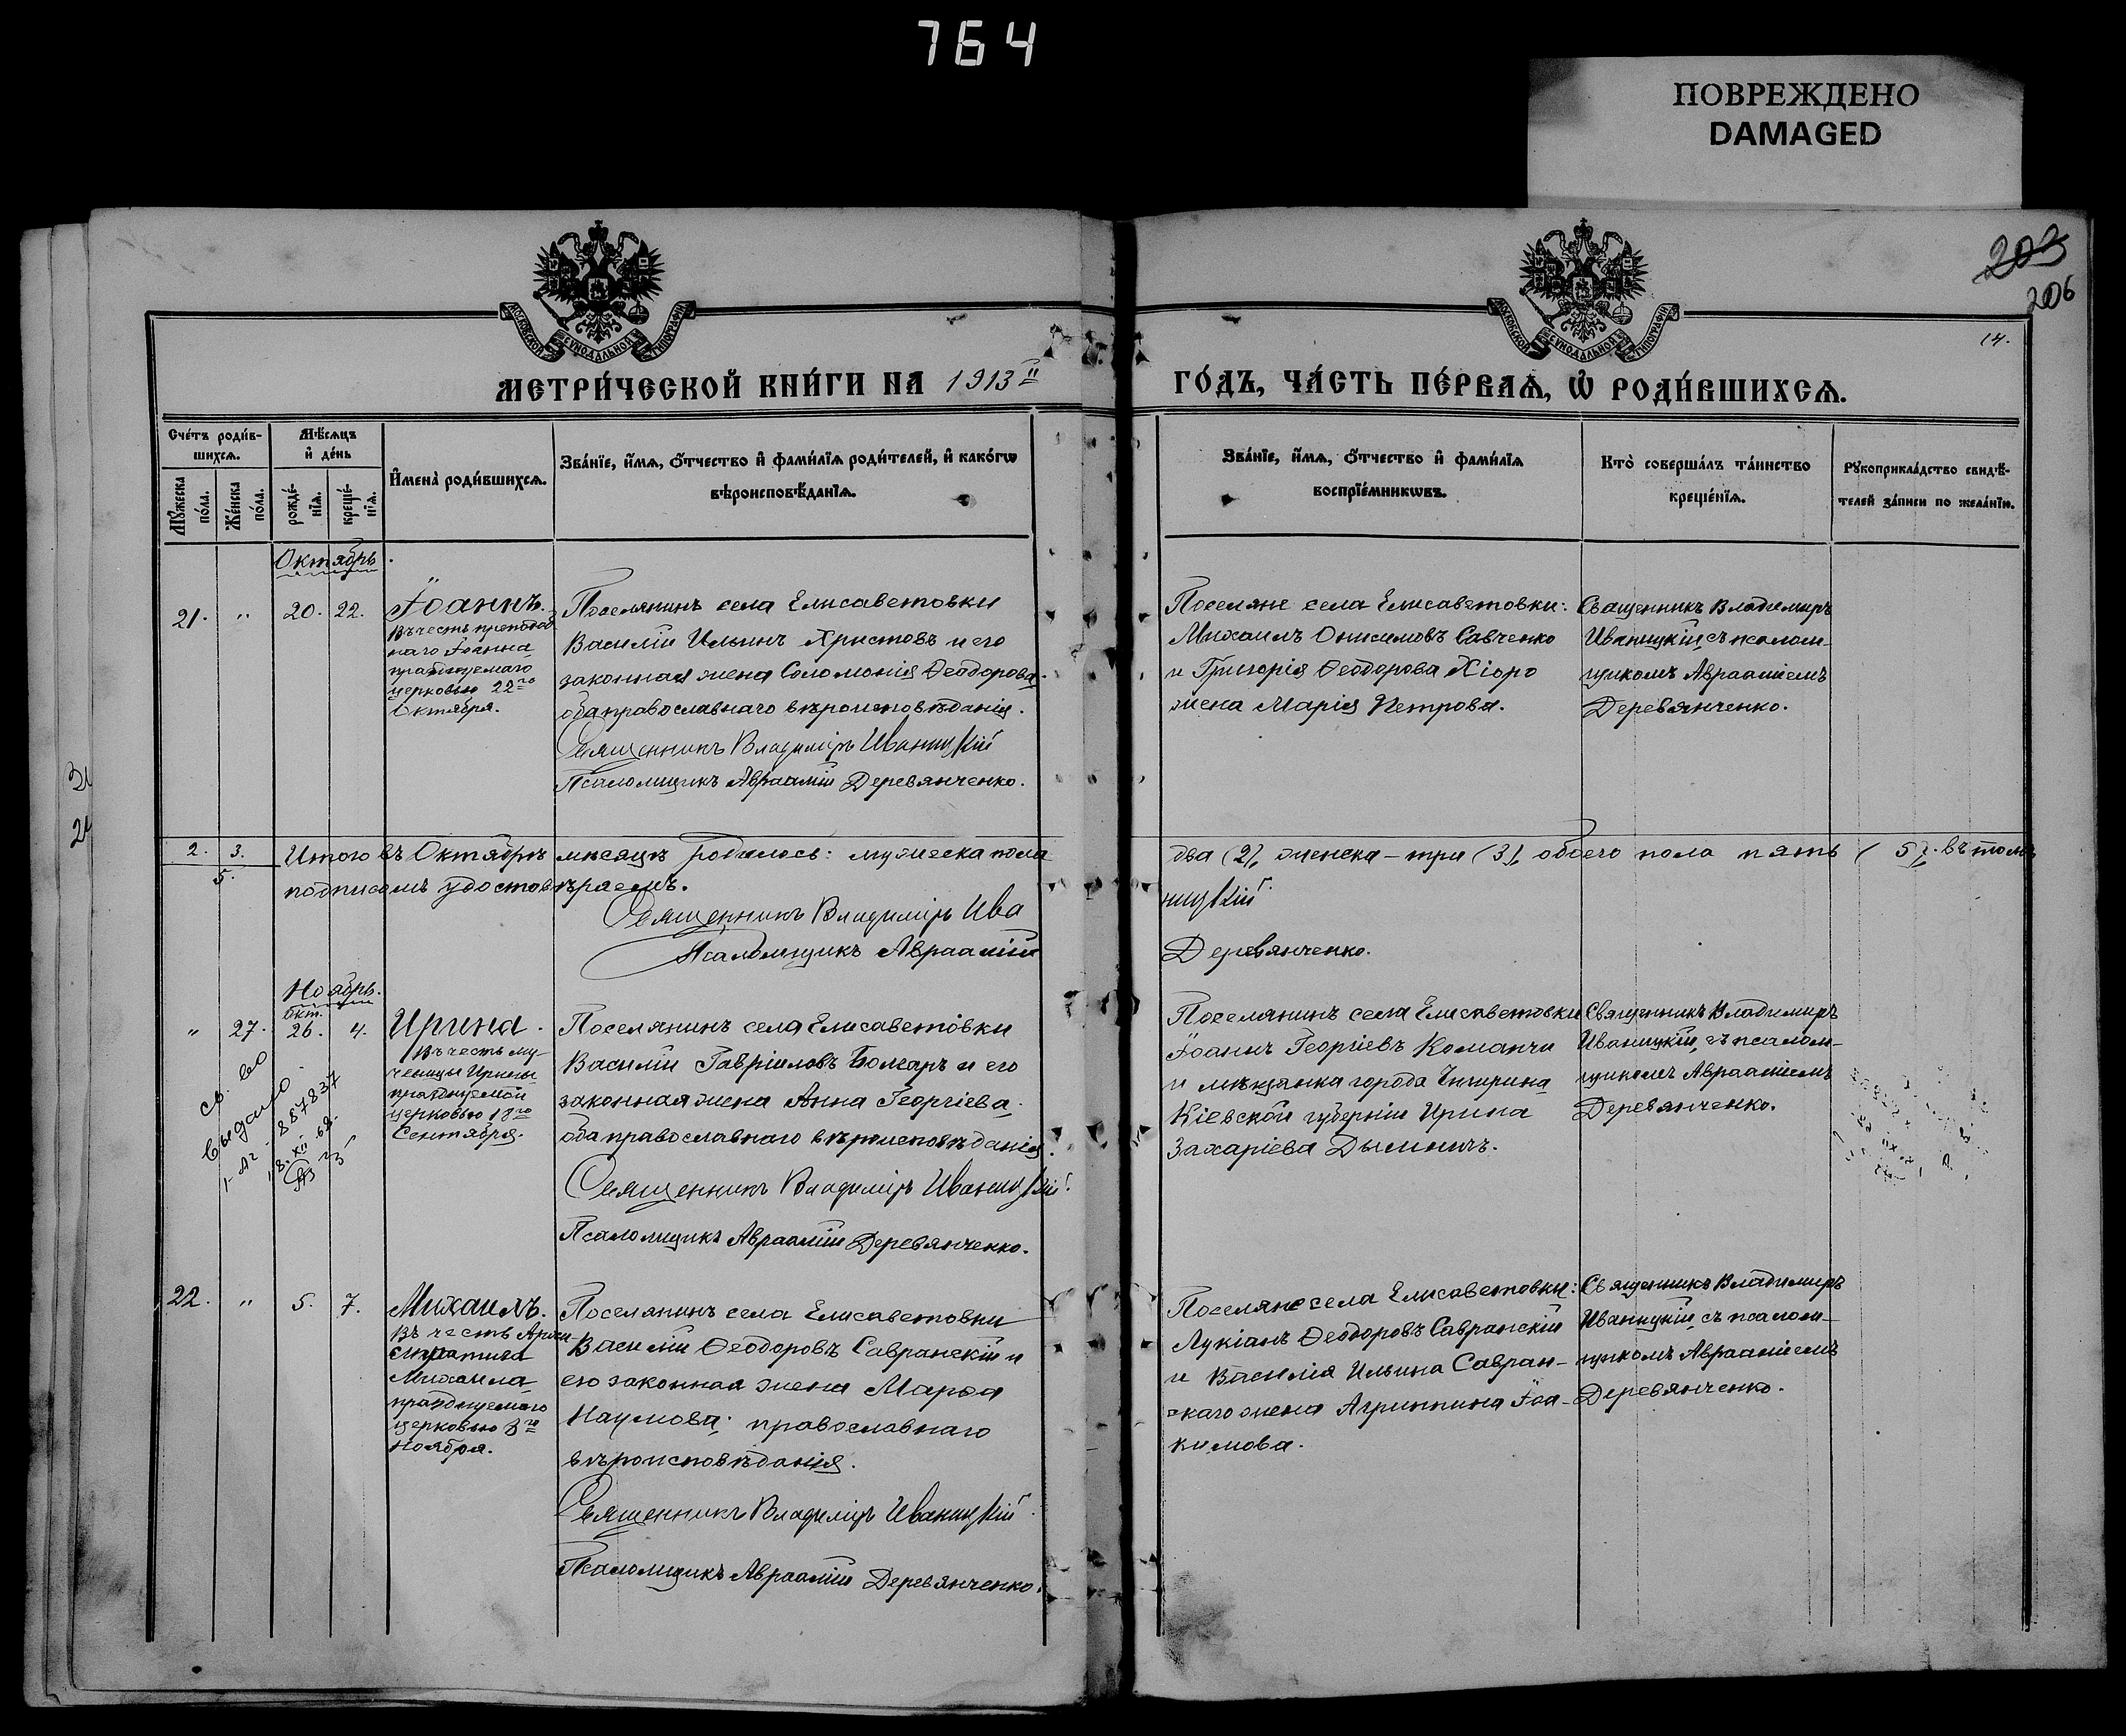 764
ПОВРЕЖДЕНО
DAMAGED
203
206
14.
МОСКОВСКОЙ СѴНОДАЛЬНОЙ ТИПОГРАФІИ
МОСКОВСКОЙ СѴНОДАЛЬНОЙ ТИПОГРАФІИ
МЕТРИ́ЧЕСКОЙ КНИ́ГИ НА 1913 й
ГО́ДЪ, ЧА́СТЬ ПЕ́РВАѦ, Ѡ РОДИ́ВШИХСѦ.
Сче́тъ роди́в-
шихсѧ.
Мꙋ́жеска по́ла.
Же́нска по́ла.
Мѣ́сѧцъ
и҆ де́нь
рожде́-
нїѧ.
креще́-
нїѧ.
И҆мена̀ роди́вшихсѧ.
Зва́нїе, и҆́мѧ, ѻ҆́тчество и҆ фами́лїѧ роди́телей, и҆ како́гѡ
вѣроисповѣ́данїѧ.
Зва́нїе, и҆́мѧ, ѻ҆́тчество и҆ фами́лїѧ
воспрїе́мникѡвъ.
Кто̀ соверша́лъ та́инство
креще́нїѧ.
Рꙋкоприкла́дство свидѣ́-
телей за́писи по жела́нїю.
Октябрь.
21. " 20. 22.
Іоаннъ.
Въ честь преподоб
наго Іоанна
празднуемаго
церковью 22го
Октября.
Поселянинъ села Елисаветовки
Василій Ильинъ Христовъ и его
законная жена Соломонія Ѳеодорова.
оба православнаго вѣроисповѣданія.
Священникъ Владиміръ Иваницкій
Псаломщикъ Авраамій Деревянченко.
Поселяне села Елисаветовки:
Михаилъ Онисимовъ Савченко
и Григорія Ѳеодорова Хіоро
жена Марія Петрова.
Священникъ Владимиръ
Иваницкій съ псалом-
щикомъ Аврааміемъ
Деревянченко.
2. 3.
5.
Итого въ Октябрѣ мѣсяцѣ родилось: мужеска пола
два (2), женска – три (3), обоего пола пять (5). въ томъ
подписомъ удостовѣряемъ.
Священникъ Владиміръ Ива
ницкій
Псаломщикъ Авраамій
Деревянченко.
Ноябрь.
" 27. Окт. 26. 4.
Ирина.
Въ честь му-
ченицы Ирины
празднуемой
церковью 18го
Сентября.
св. во
выдано
887837
18.XII 68.
Поселянинъ села Елисаветовки
Василій Гавріиловъ Болгаръ и его
законная жена Анна Георгіева.
оба православнаго вѣроисповѣданія.
Священникъ Владиміръ Иваницкій.
Псаломщикъ Авраамій Деревянченко.
Поселянинъ села Елисаветовки
Іоаннъ Георгіевъ Команчи
и мѣщанка города Чигирина
Кіевской губерніи Ирина
Захаріева Дыминичъ.
Священникъ Владимиръ
Иваницкій, съ псалом-
щикомъ Аврааміемъ
Деревянченко.
22. " 5. 7.
Михаилъ.
Въ честь Архи-
стратига
Михаила
празднуемаго
церковью 8го
Ноября.
Поселянинъ села Елисаветовки
Василій Ѳеодоровъ Савранскій и
его законная жена Марѳа
Наумова; православнаго
вѣроисповѣданія.
Священникъ Владиміръ Иваницкій
Псаломщикъ Авраамій Деревянченко.
Поселяне села Елисаветовки:
Лукіанъ Ѳеодоровъ Савранскій
и Василія Ильина Савран-
скаго жена Агриппина Іоа-
кимова.
Священникъ Владимиръ
Иваницкій, съ псалом-
щикомъ Аврааміемъ
Деревянченко.